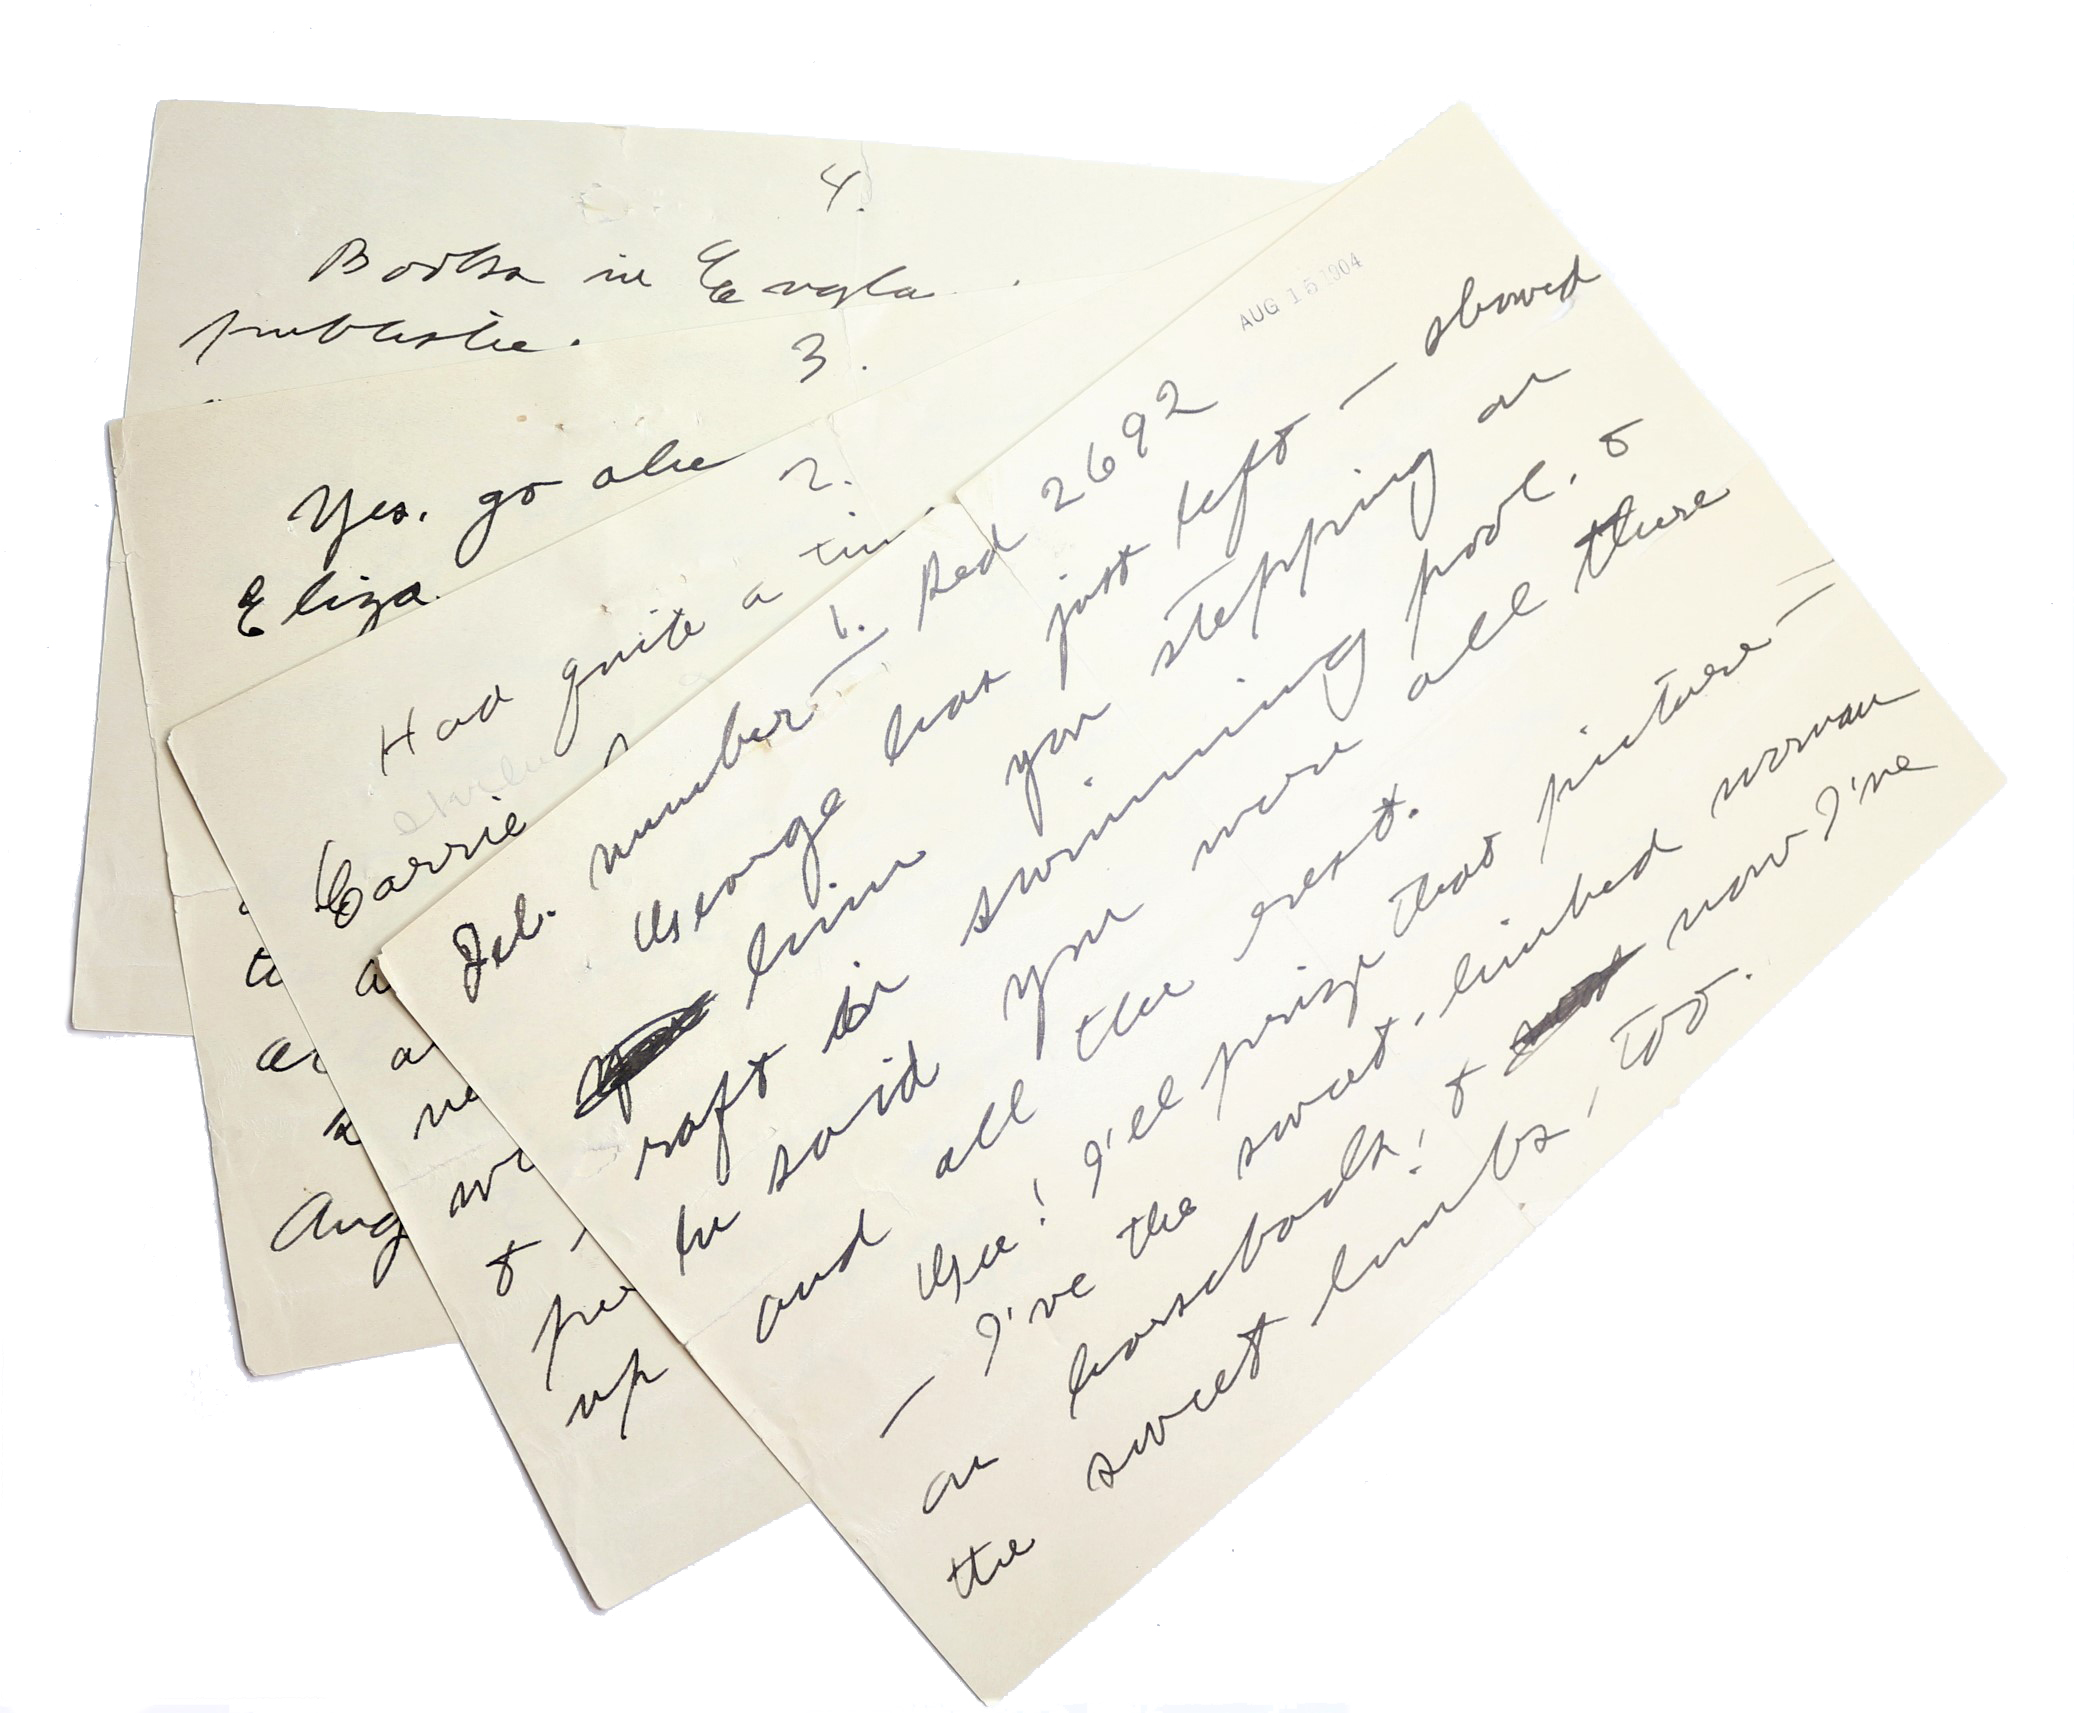 4.
Books in Engla
publishe.
3.
Yes, go ahe
Eliza
to
a
Aug
2.
Had quite a tim
Carrie
a
a
ne
&
pre
up
AUG 15 1904
1.
Tel. number Red 2692
George has just left — showed
him you stepping on
raft in swimming pool, &
he said you were all there
and all the rest.
Gee! I'll prize that picture —
— I've the sweet, limbed woman
on horseback, & now I've
the sweet limbs, too.